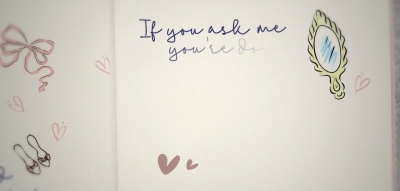 If you ask me
you're Do